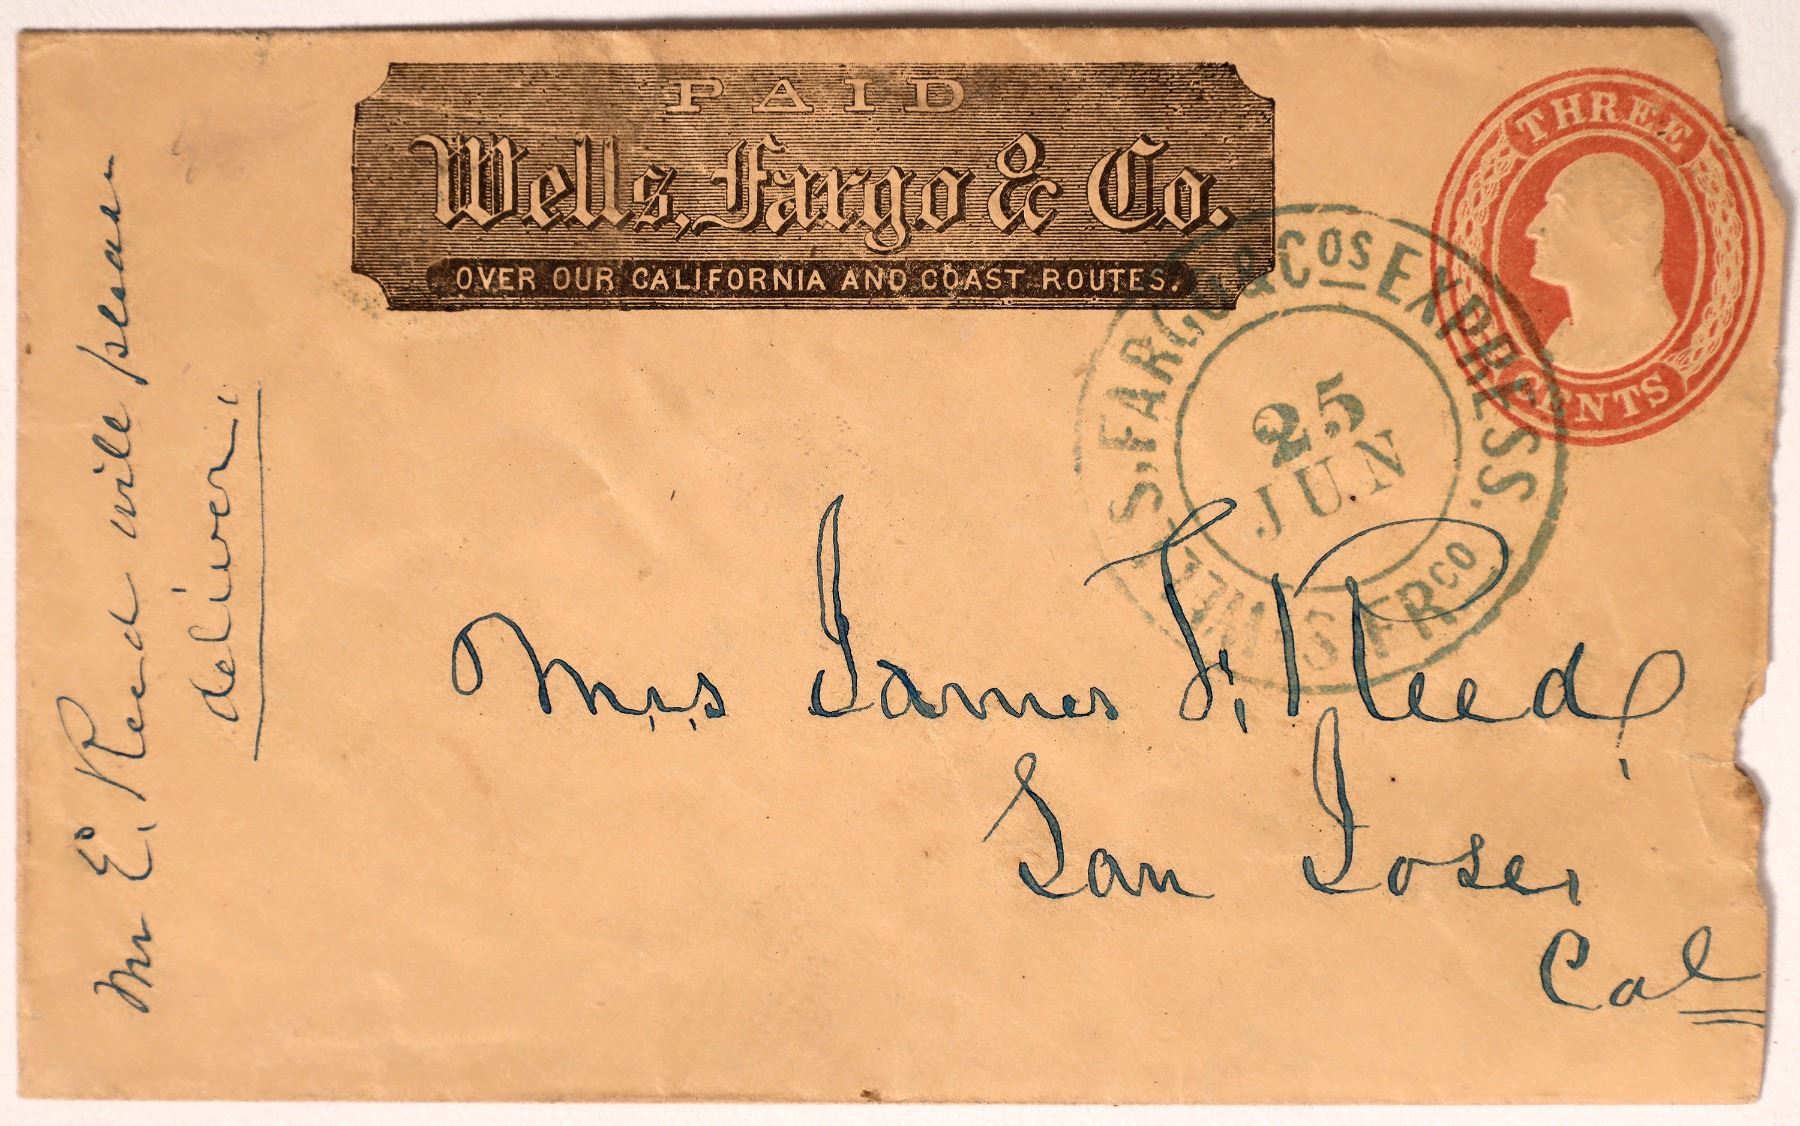 PAID
Wells, Fargo & Co.
OVER OUR CALIFORNIA AND COAST ROUTES.
THREE
CENTS
WELLS, FARGO & COS EXPRESS.
25
JUN
S. FRCO
Mr E. Reed will please
deliver.
Mrs James F. Reed,
San Jose,
Cal